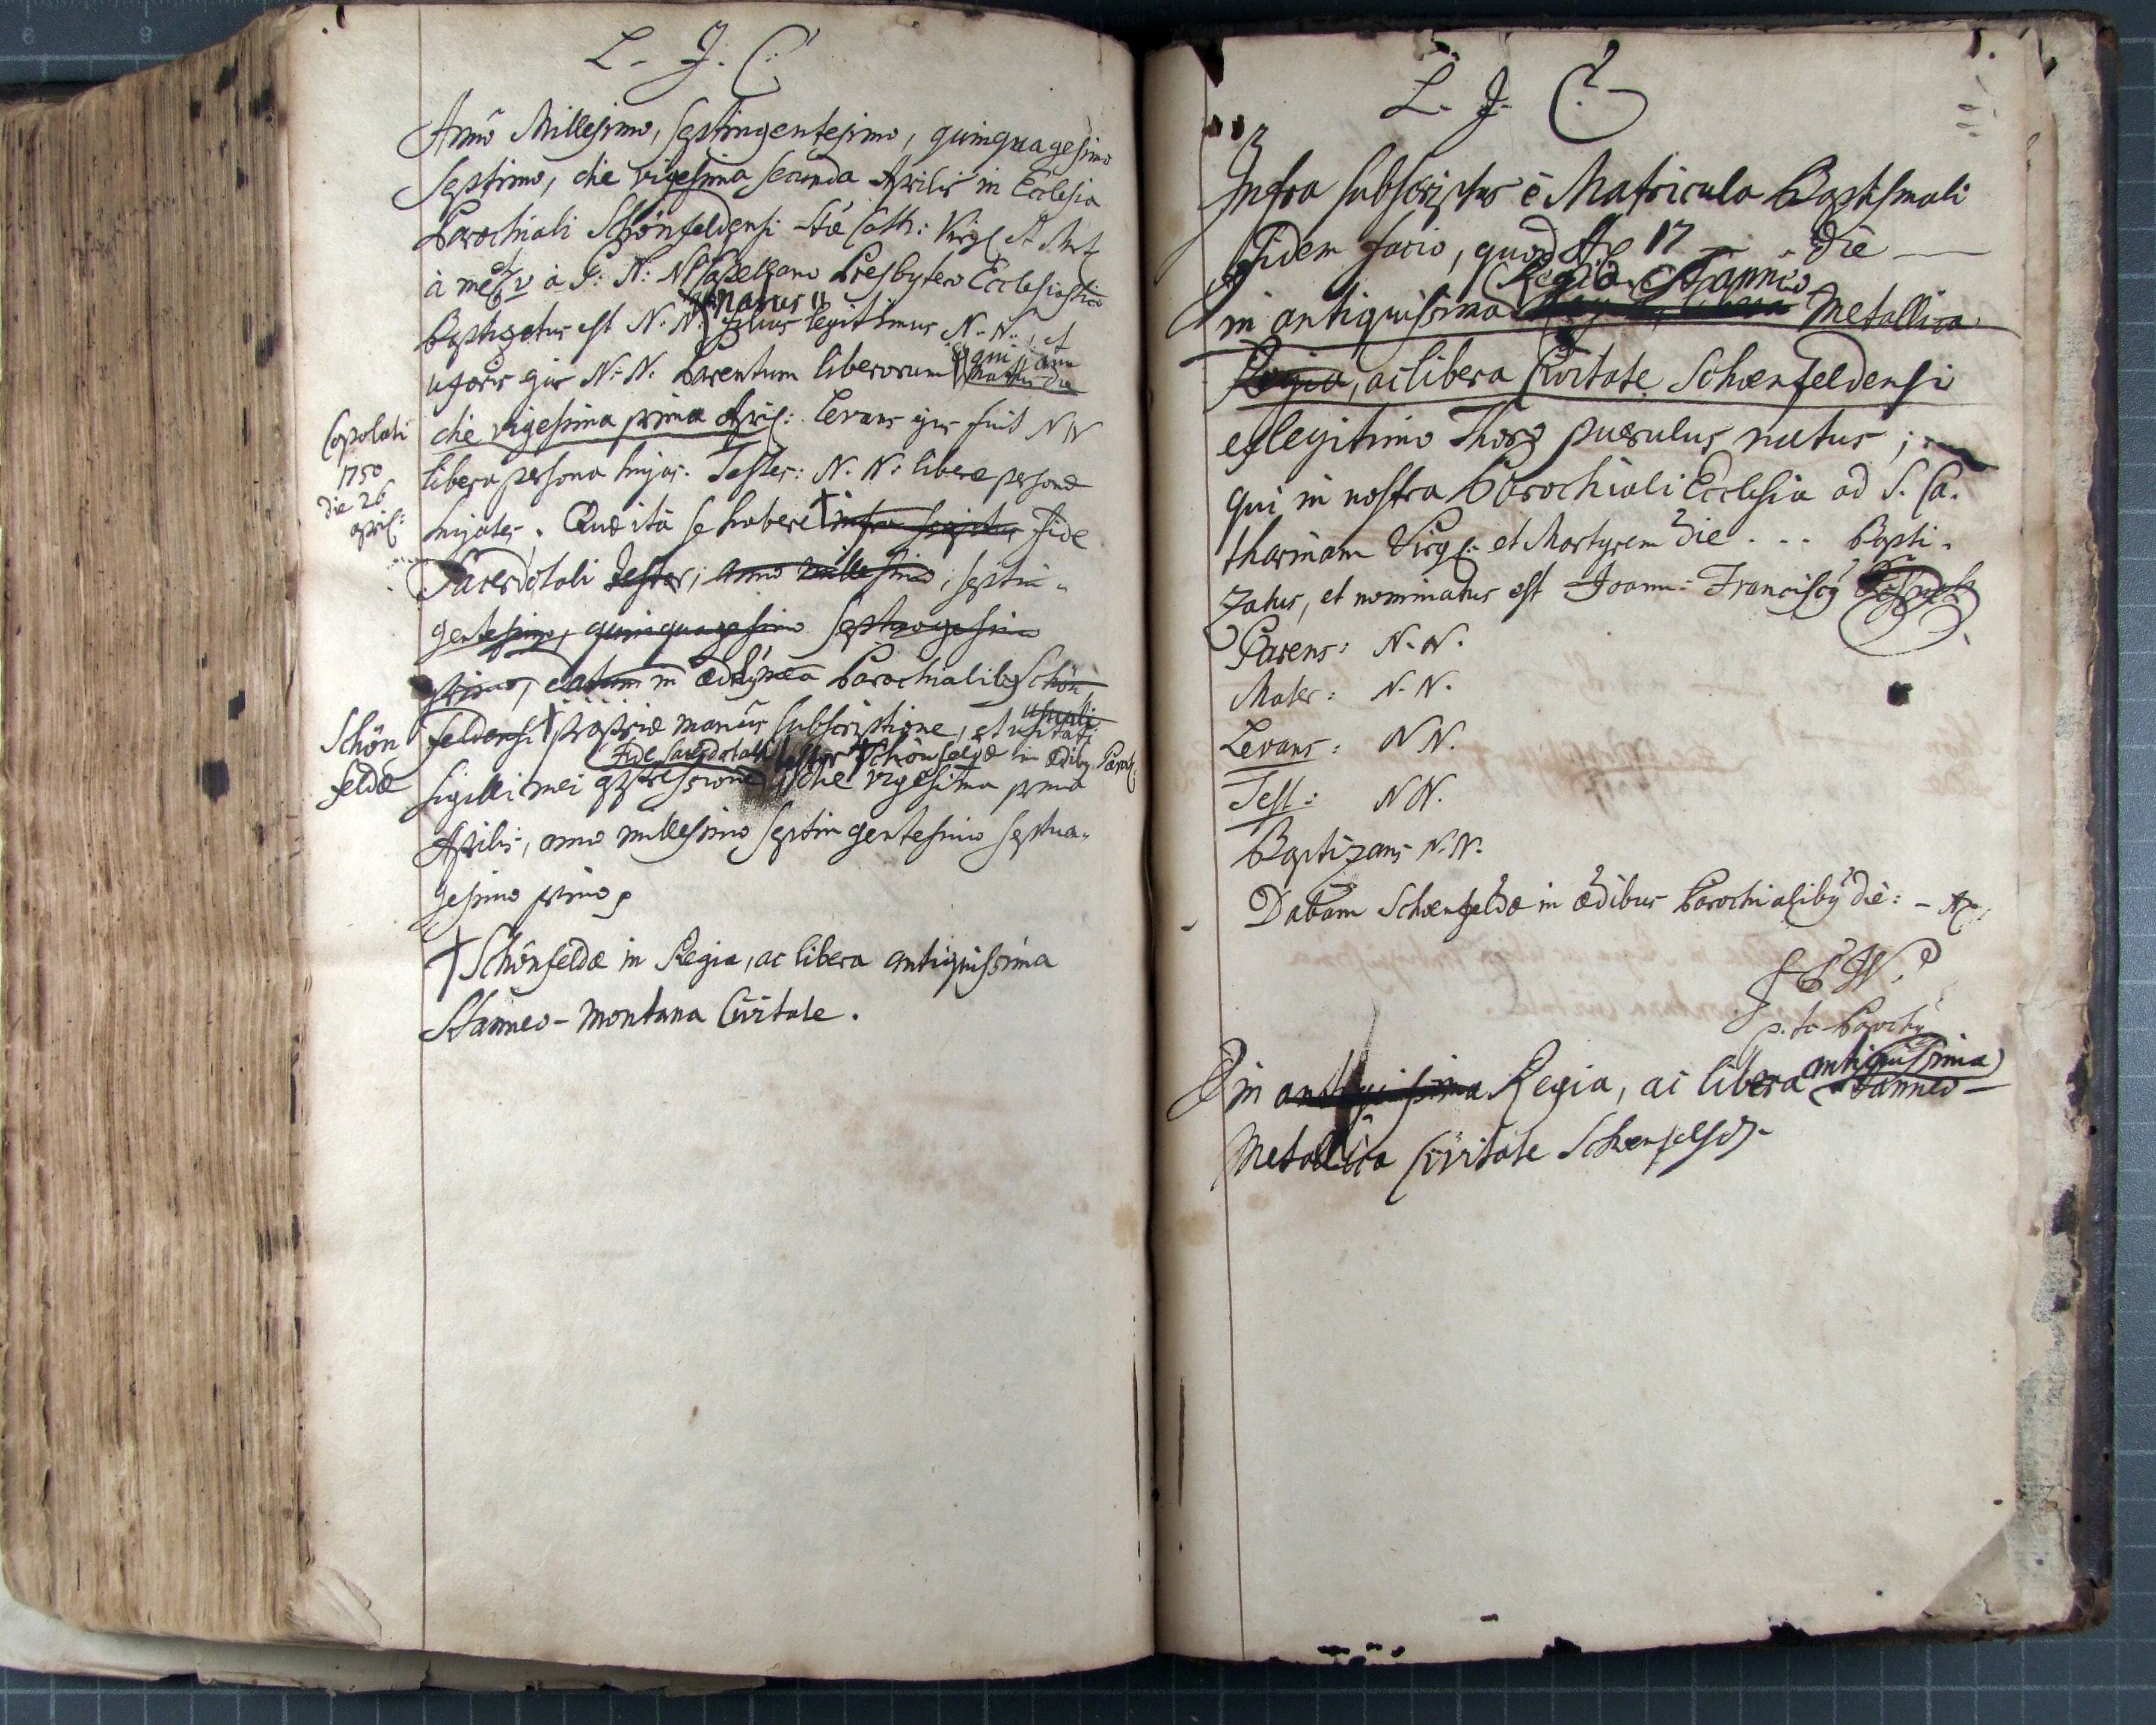 L. J. C.
Anno Millesimo, septingentesimo, quinquagesimo
septimo, die vigesima secunda Aprilis in Ecclesia
Parochiali Schönfeldensi Stæ Cath: Virg: et Mart
à me à P: N: N: Capellano Presbytero Ecclesiastico
natus
baptizatus est N. N. filius legitimus N. N: et
uxoris ejus N: N. Parentum liberorum qui
die vigesima prima April: Levans ejus fuit N N
libera persona hujas. Testes: N. N: liberæ personæ
hujates. Quæ ita se habere infra scriptus fide
Sacerdotali testor; anno millesimo, septin-
gentesimo, quinquagesimo septuagesimo
primo, datum in ædibus Parochialibus Schön
feldensi propriæ manûs subscriptione, et usitati
usuali
fide sacerdotali testor Schönfeldæ in ædibus Paroch:
sigilli mei expressione, die vigesima prima
Aprilis, anno millesimo septingentesimo septua-
gesimo primo
† Schönfeldæ in Regia, ac libera antiquissima
Stanneo-montana Civitate.
Copolati
1750
die 26
april:
Schön
feldæ
L. J. C.
Infra subscriptus è Matricula Baptismali
fidem facio, quod Ao 17 - die
Regia Stanneo
in antiquissima Metallica
Regia, ac libera Civitate Schœnfeldensi
ex legitimo Thoro puerulus natus;
qui in nostra Parochiali Ecclesia ad S. Ca-
tharinam Virg: et Martyrem die ... bapti-
zatus, et nominatus est Joann: Franciscus
Parens: N. N.
Mater: N. N.
Levans: N N.
Test: N N.
Baptizans N. N.
Dabam Schœnfeldæ in ædibus Parochialibus die: - Ao:
J F W.
p. t. Parochus
antiquissima
in antiquissima Regia, ac libera Stanneo-
Metallica Civitate Schœnfeld